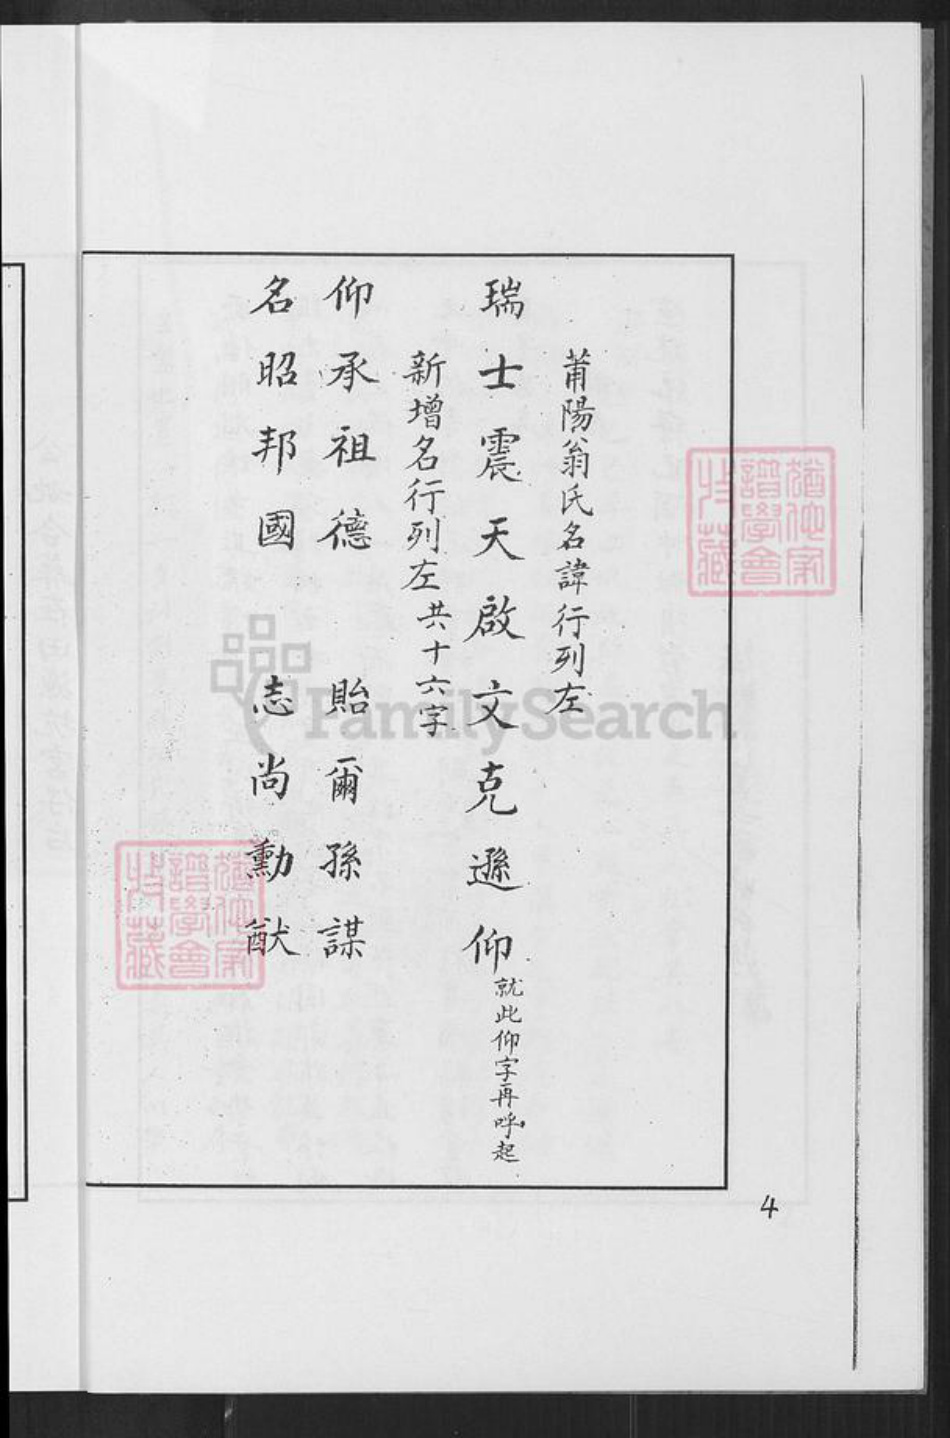 莆陽翁氏名諱行列左
瑞士震天啟文克遜仰就此仰字再呼起
新增名行列左共十六字
仰承祖德 貽爾孫謀
名昭邦國 志尚勳猷
4
FamilySearch
譜學會